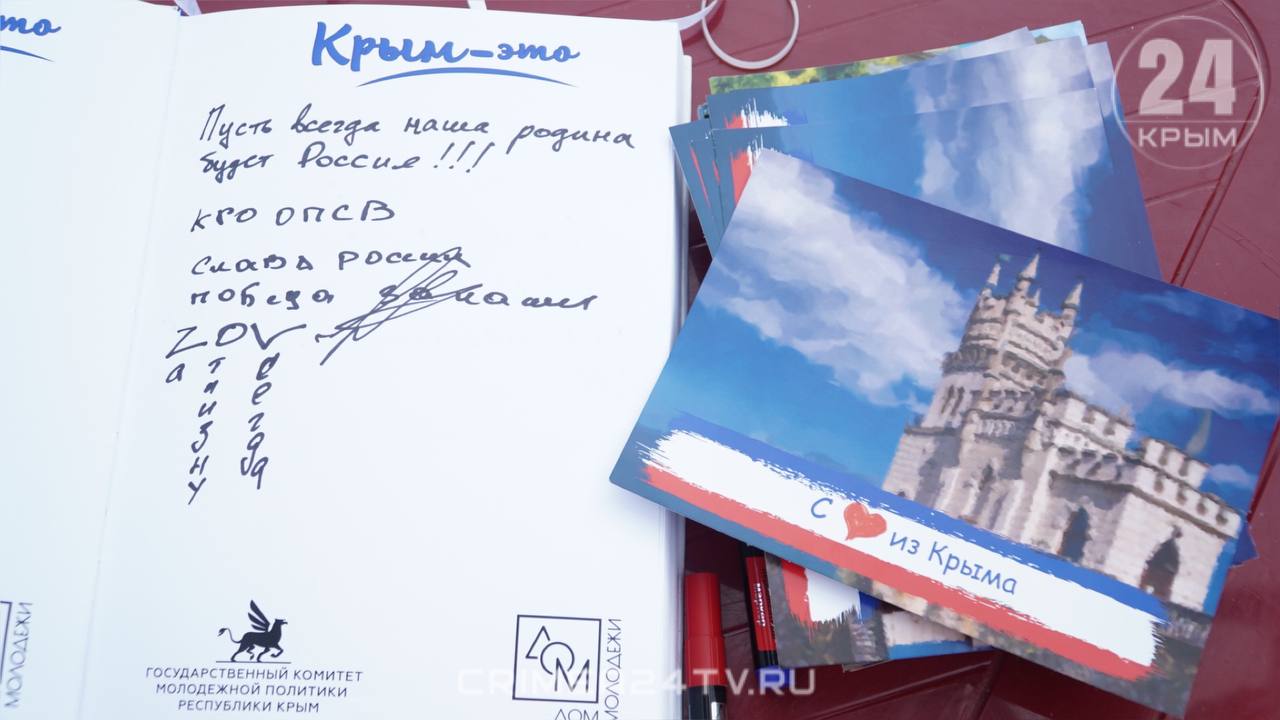 это
Крым-это
Пусть всегда наша родина
будет Россия!!!
КРО ОПСВ
Слава России
победа за нами
ZOV
а т с
ч е
и г
з д
н а
у
ГОСУДАРСТВЕННЫЙ КОМИТЕТ
МОЛОДЕЖНОЙ ПОЛИТИКИ
РЕСПУБЛИКИ КРЫМ
ДОМ
ДОМ
МОЛОДЕЖИ
МОЛОДЕЖИ
24
КРЫМ
С из Крыма
CRIMEA24TV.RU